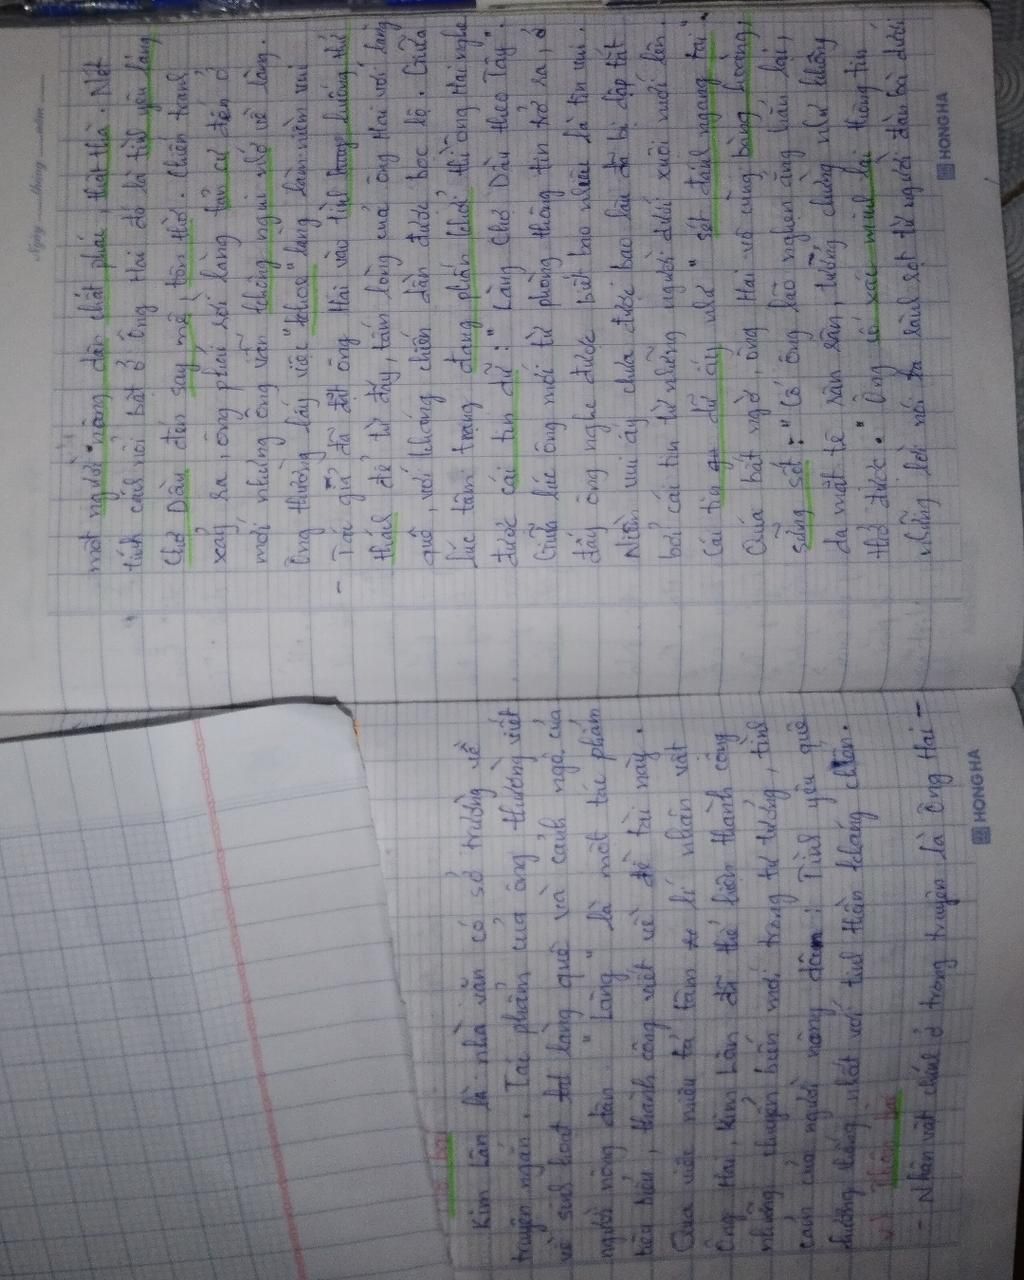 Mở bài
Kim Lân là nhà văn có sở trường về
truyện ngắn. Tác phẩm của ông thường viết
về sinh hoạt làng quê và cảnh ngộ của
người nông dân. "Làng" là một tác phẩm
tiêu biểu, thành công viết về đề tài này.
Qua việc miêu tả tâm lí nhân vật
Ông Hai, Kim Lân đã thể hiện thành công
những chuyển biến mới trong tư tưởng, tình
cảm của người nông dân: Tình yêu quê
hương thống nhất với tinh thần kháng chiến.
Thân bài
- Nhân vật chính ở trong truyện là Ông Hai -
HONGHA
Ngày tháng năm
một người nông dân chất phác, thật thà. Nét
tính cách nổi bật ở Ông Hai đó là tình yêu làng
Chợ Dầu đến say mê, tôn thờ. Chiến tranh
xảy ra, ông phải rời làng tản cư đến ở
mới nhưng ông vẫn không nguôi nhớ về làng.
Ông thường lấy việc "khoe" làng làm niềm vui
- Tác giả đã đặt ông Hai vào tình huống thử
thách để từ đấy, tấm lòng của ông Hai với làng
quê, với kháng chiến dần được bộc lộ. Giữa
lúc tâm trạng đang phấn khởi thì ông Hai nghe
được cái tin dữ: "Làng Chợ Dầu theo Tây".
Chính lúc ông mới từ phòng thông tin trở ra, ở
đấy ông nghe được biết bao nhiêu là tin vui.
Niềm vui ấy chưa được bao lâu đã bị dập tắt
bởi cái tin từ những người dưới xuôi mới lên.
Cái tin dữ ấy như "sét đánh ngang tai".
Quá bất ngờ, ông Hai vô cùng bàng hoàng,
sững sờ: "Cổ ông lão nghẹn ắng hẳn lại,
da mặt tê rân rân, tưởng chừng như không
thở được." Ông cố xác minh lại thông tin
những lời nói ra rành rọt từ người đàn bà dưới
HONGHA